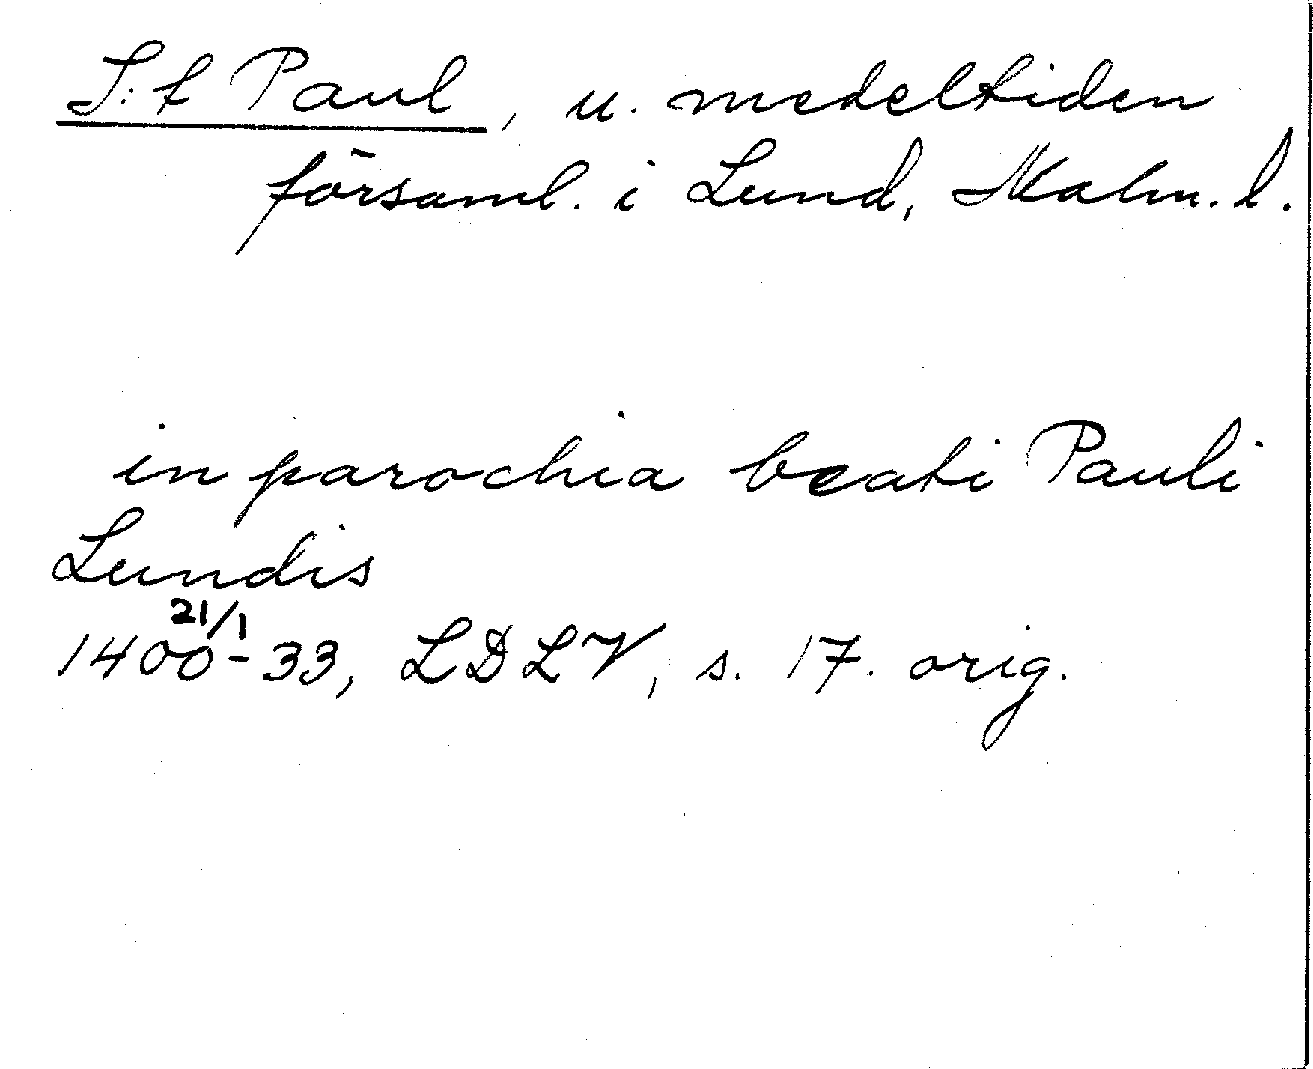 S:t Paul, u. medeltiden
församl. i Lund, Malm. l.
in parochia beati Pauli
Lundis
21/1
1400-33, LDLV, s. 17. orig.